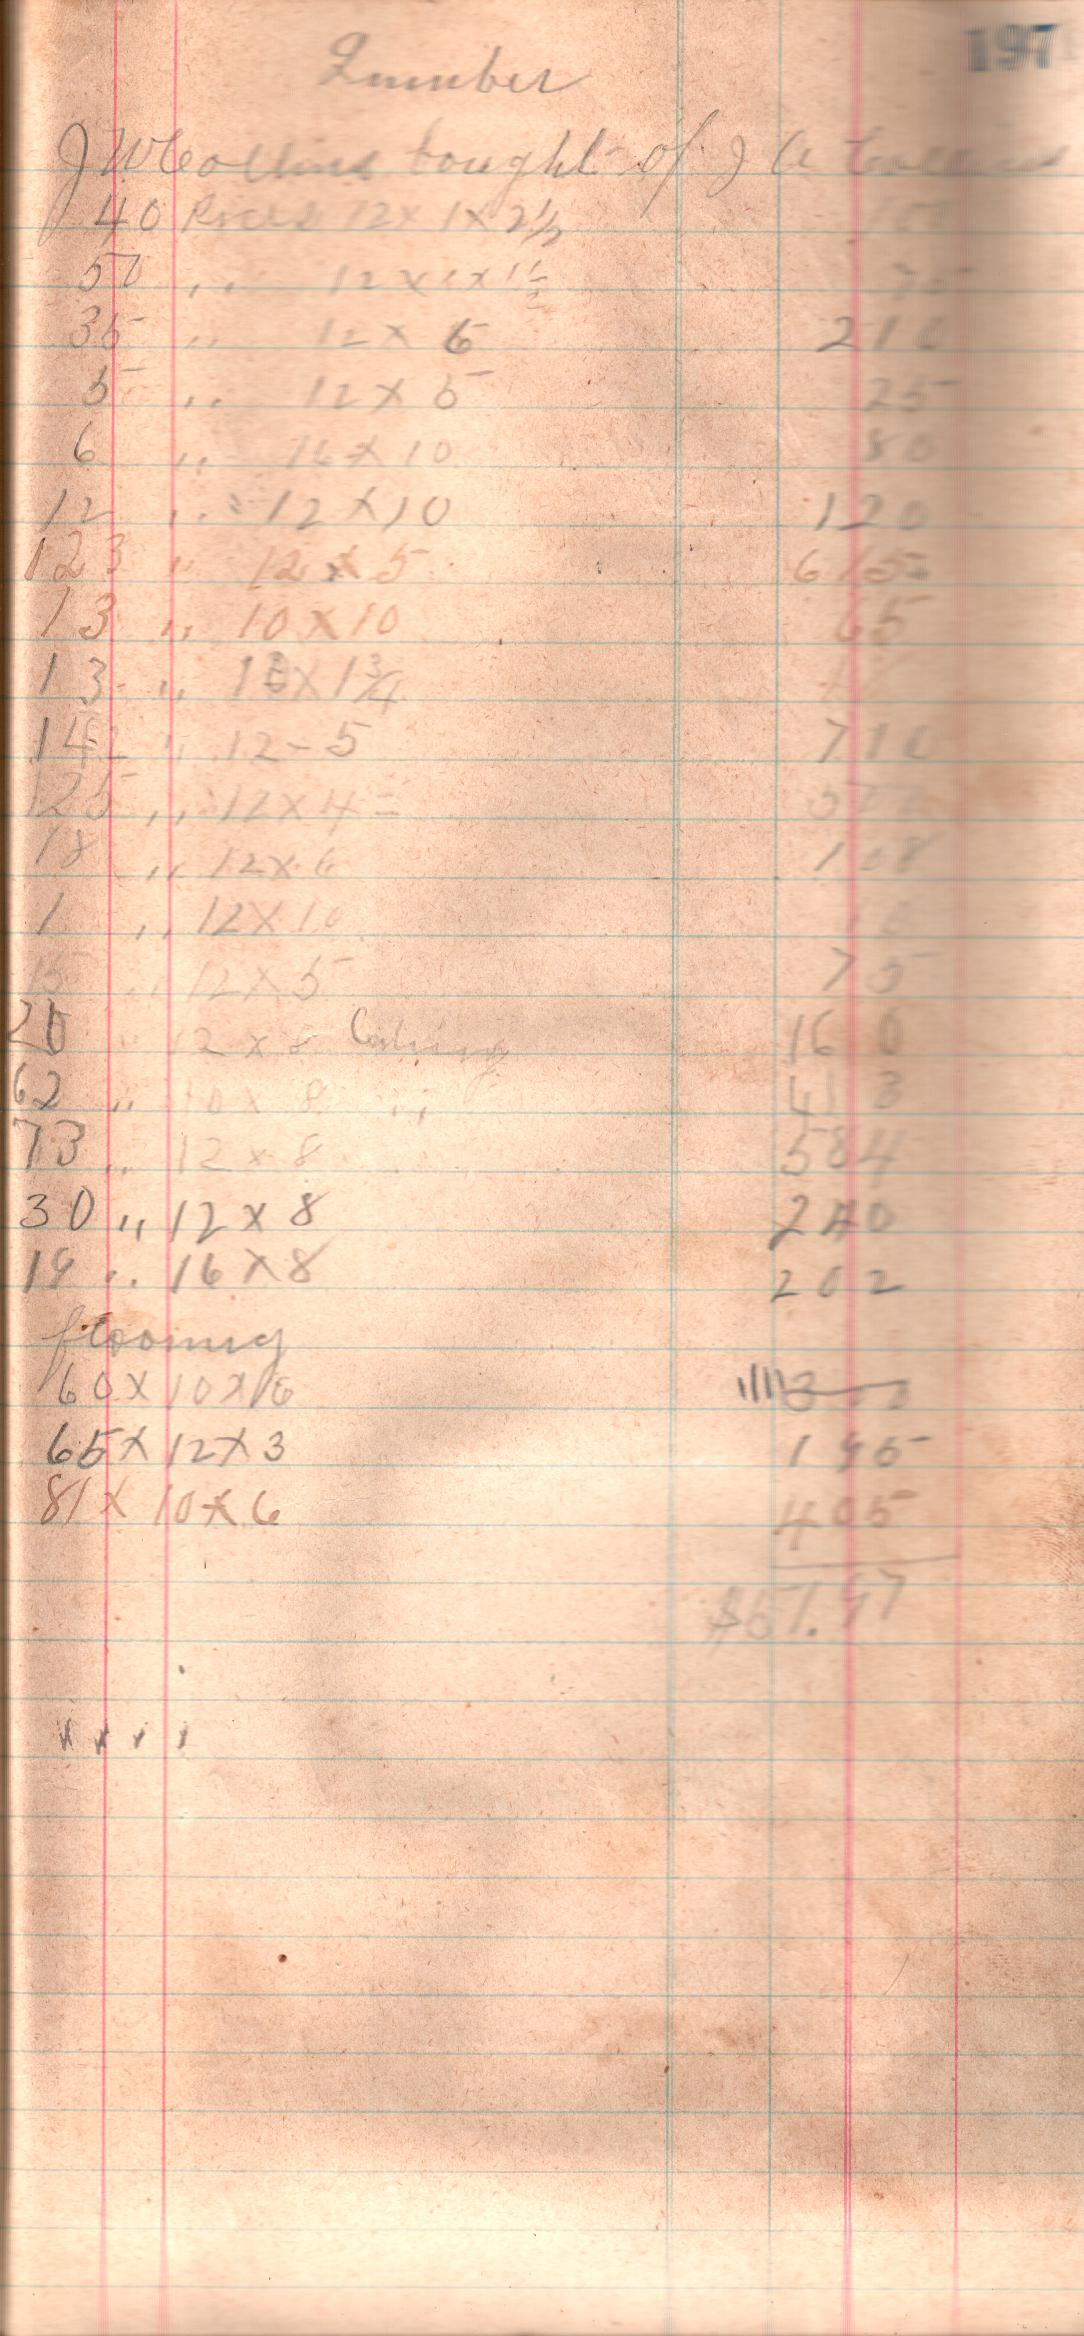 197
Lumber
J W Collins bought of J A Collins
40 Pieces 12 x 1 x 2 1/2
50 ,, 12 x 1 x 1 1/2 75
35 ,, 12 x 6 210
5 ,, 12 x 5 25
6 ,, 16 x 10 80
12 ,, 12 x 10 120
123 ,, 12 x 5 615
13 ,, 10 x 10 65
13 ,, 1 3/4
142 ,, 12 - 5 710
125 ,, 12 x 4 =
18 ,, 12 x 6 108
1 ,, 12 x 10 10
15 ,, 12 x 5 75
20 ,, 12 x 8 Ceiling 160
62 ,, 10 x 8 ,, 413
73 ,, 12 x 8 584
30 ,, 12 x 8 240
19 ,, 16 x 8 202
flooring
60 x 10 x 6 300
65 x 12 x 3 195
81 x 10 x 6 405
$67.97